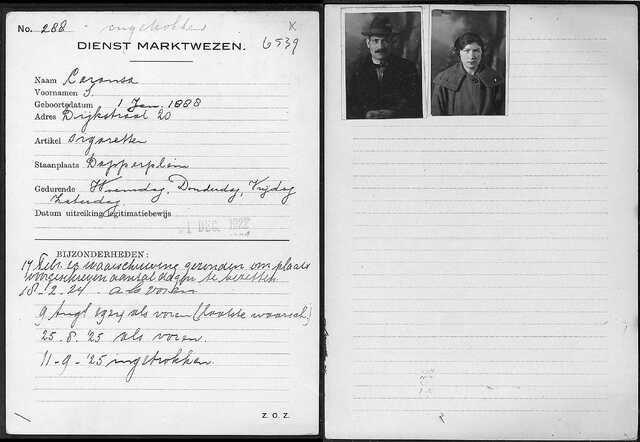 No. 288 ingetrokken X
DIENST MARKTWEZEN. 6539
Naam Caransa
Voornamen S.
Geboortedatum 1 Jan. 1888
Adres Dijkstraat 20
Artikel sigaretten
Staanplaats Dapperplein
Gedurende Woensdag, Donderdag, Vrijdag
Zaterdag
Datum uitreiking legitimatiebewijs
31 DEC. 1922
BIJZONDERHEDEN:
14 Febr. waarschuwing gezonden om plaats
voorgeschreven aantal dagen te bezetten
18-2-24 als voren
9 Aug 1924 als voren (laatste waarsch.)
25-8-'25 als voren.
11-9-'25 ingetrokken
Z. O. Z.